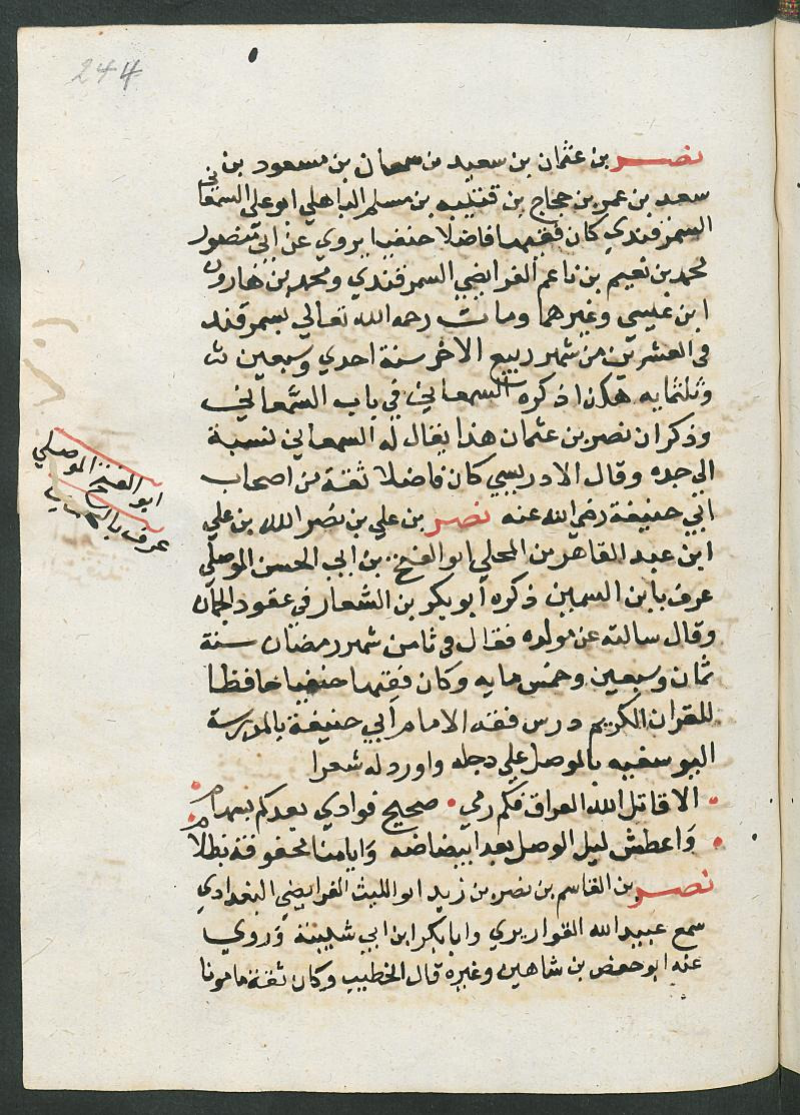 244
نصر بن عثمان بن سعيد بن سمعان بن مسعود بن
سعد بن عمر بن حجاج بن قتيبه بن مسلم الباهلي ابو علي السمعاني
السمرقندي كان فقيها فاضلا حنفيا يروي عن ابي منصور
محمد بن نعيم بن ناعم الفرايضي السمرقندي ومحمد بن هارون
ابن عيسي وغيرهما ومات رحمه الله تعالي بسمرقند
في العشرين من شهر ربيع الاخر سنة احدي وسبعين
وثلثمايه هكذا ذكره السمعاني في باب السمعاني
وذكر ان نصر بن عثمان هذا يقال له السمعاني نسبة
الي جده وقال الادريسي كان فاضلا ثقة من اصحاب
ابي حنيفة رضي الله عنه نصر بن علي بن نصر الله بن علي
ابن عبد القاهر بن المحلي ابو الفتح بن ابي الحسن الموصلي
عرف بابن السمين ذكره أبو بكر بن الشعار في عقود الجمان
وقال سالته عن مولده فقال في ثامن شهر رمضان سنة
ثمان وسبعين وخمس مايه وكان فقيها حنفيا حافظا
للقران الكريم درس فقه الامام أبي حنيفة بالمدرسة
اليوسفيه بالموصل علي دجله واورد له شعرا
الا قاتل الله العراق فكم رمي صحيح فوادي بعدكم بسهام
وأعطش ليل الوصل بعد ابيضاضه وايامنا محفوفة بظلام
نصر بن القاسم بن نصر بن زيد ابو الليث الفرايضي البغدادي
سمع عبيد الله القواريري وابا بكر ابن ابي شيبة وروي
عنه ابو حفص بن شاهين وغيره قال الخطيب وكان ثقة مامونا
ابو الفتح الموصلي
عرف